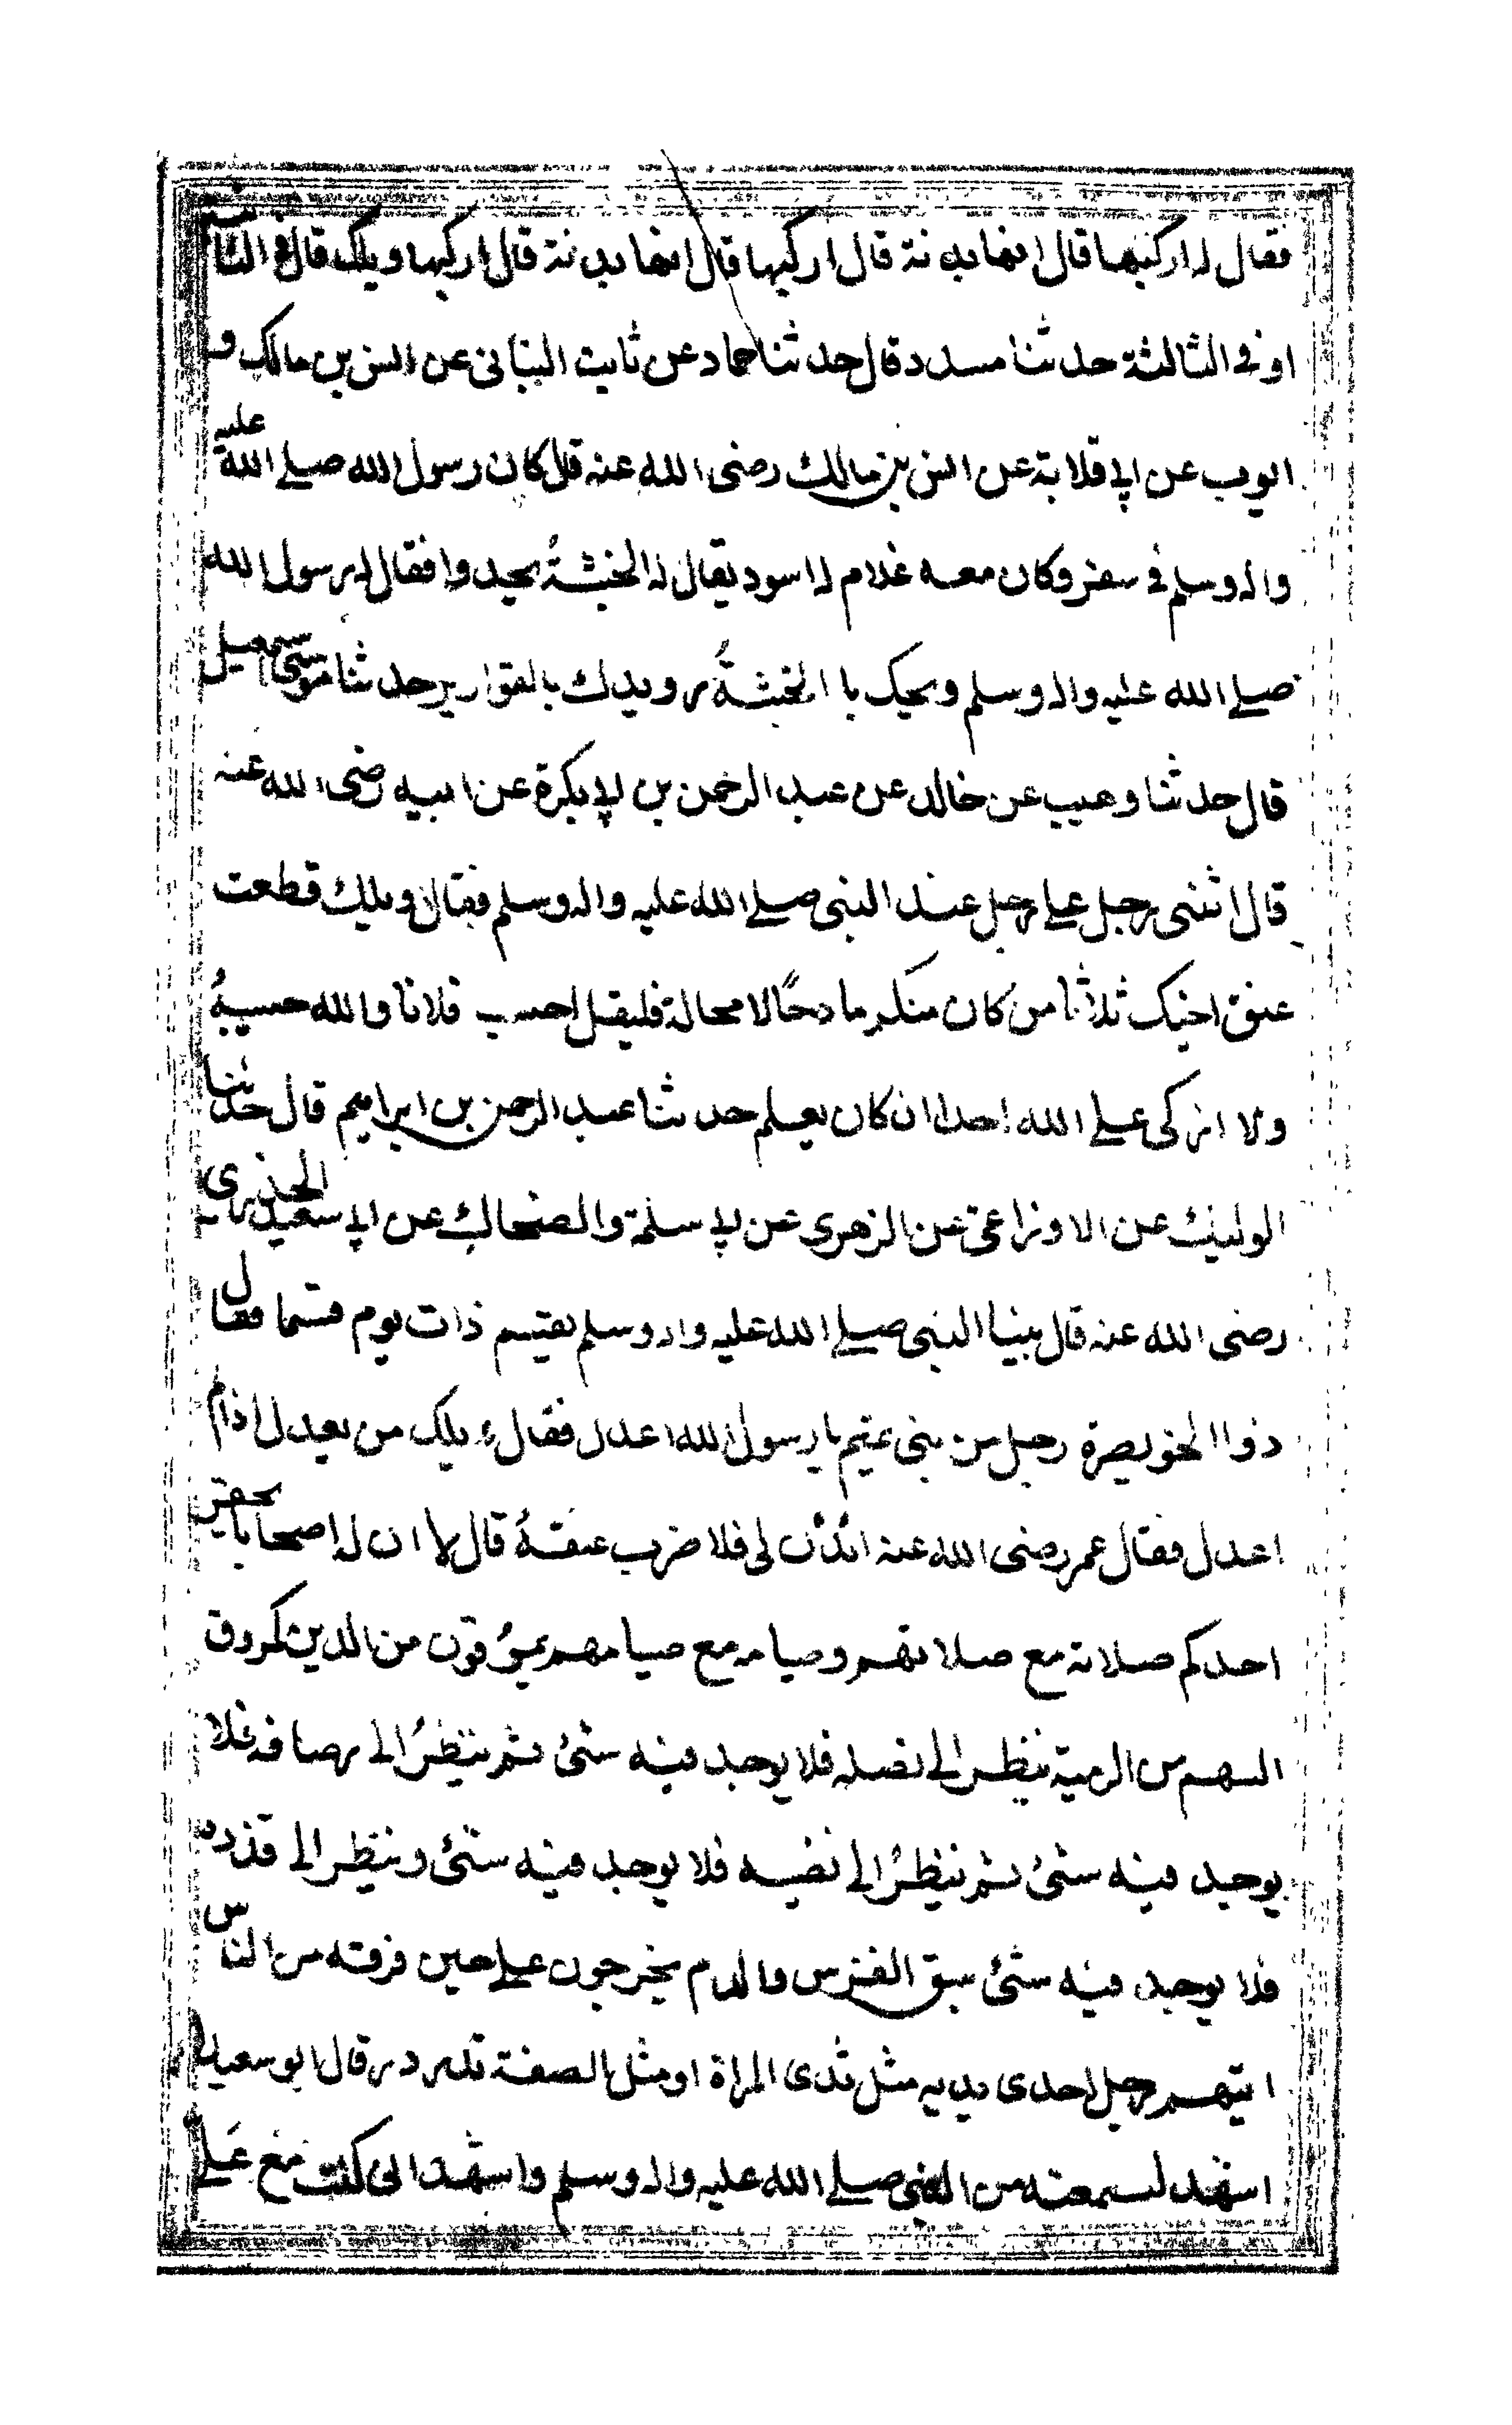 فقال له اركبها قال انها بدنة قال اركبها قال انها بدنة قال اركبها ويلك قال في الثا
او في الثالثة حدثنا مسدد قال حدثنا حماد عن ثابت البناني عن انس بن مالك و
ايوب عن ابي قلابة عن انس بن مالك رضي الله عنه قال كان رسول الله صلى الله عليه
واله وسلم في سفر وكان معه غلام له اسود يقال له انجشةُ يحدوا فقال له رسول الله
صلى الله عليه واله وسلم ويحك يا انجشةُ رويدك بالقوارير حدثنا موسى اسمعيل
قال حدثنا وهيب عن خالد عن عبد الرحمن بن ابي بكرة عن ابيه رضي الله عنه
قال اثنى رجل على رجل عند النبي صلى الله عليه واله وسلم فقال ويلك قطعت
عنق اخيك ثلاثا من كان منكم مادحًا لا محالة فليقل احسب فلانا والله حسيبهُ
ولا ازكي على الله احدا ان كان يعلم حدثنا عبد الرحمن بن ابراهيم قال حدثنا
الوليد عن الاوزاعي عن الزهري عن ابي سلمة والضحاك عن ابي سعيد الخدري
رضي الله عنه قال بينا النبي صلى الله عليه واله وسلم يقسم ذات يوم قسما فقال
ذوا الخويصرة رجل من بني تميم يا رسول الله اعدل فقال ويلك من يعدل اذا لم
اعدل فقال عمر رضي الله عنه ائذن لي فلاضرب عنقهُ قال لا ان له اصحابا يحقر
احدكم صلاته مع صلاتهم وصيامه مع صيامهم يمرقون من الدين كمروق
السهم من الرمية ينظر الى نصله فلا يوجد فيه شئ ثم ينظرُ الى رصافه فلا
يوجد فيه شئُ ثم ينظرُ الى نضيه فلا يوجد فيه شئ وينظر الى قذذه
فلا يوجد فيه شئ سبق الفرث والدم يخرجون على حين فرقه من الناس
ايتهم رجل احدى يديه مثل ثدى المراة او مثل البضعة تدردر قال ابو سعيد
اشهد لسمعته من النبي صلى الله عليه واله وسلم واشهد اني كنت مع علي